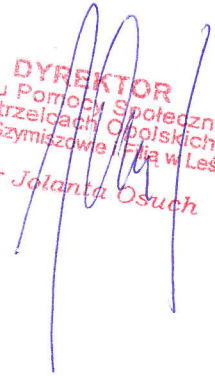 DYREKTOR
u Pomocy Społeczn
trzelcach Opolskich
zymiszowie i Filią w Leś
- Jolanta Osuch